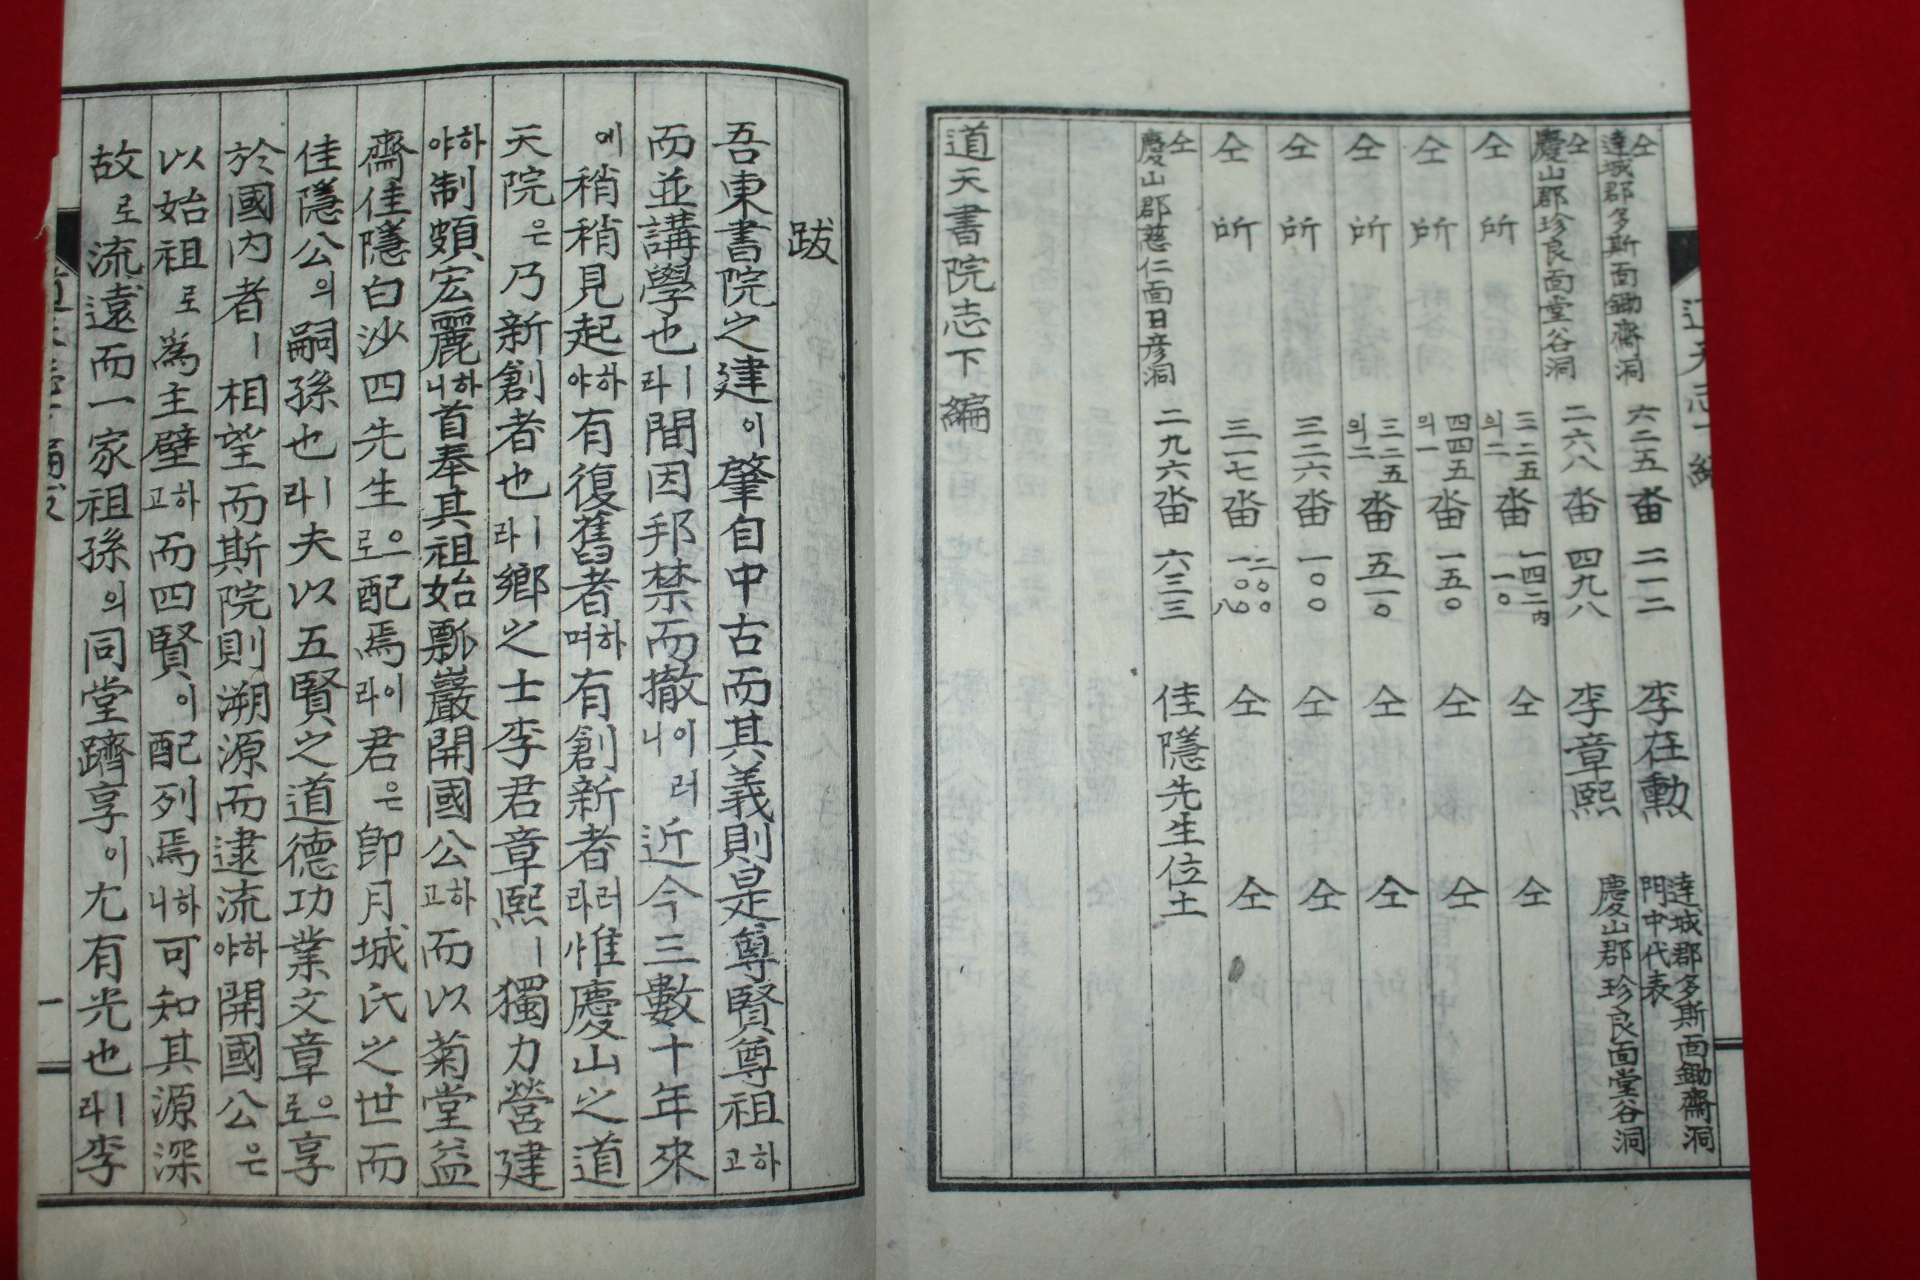 仝
達城郡多斯面鋤齋洞 六二五 畓 二一二 李在勳 達城郡多斯面鋤齋洞
門中代表
仝
慶山郡珍良面堂谷洞 二六八 畓 四九八 李章熙 慶山郡珍良面堂谷洞
仝所 三二五의二 畓 一四二內一一〇 仝 仝
仝所 四四五의一 畓 一五〇 仝 仝
仝所 三二五의二 畓 五一〇 仝 仝
仝所 三二六 畓 一〇〇 仝 仝
仝所 三一七 畓 仝 仝
仝
慶山郡慈仁面日彦洞 二九六 畓 六三三 佳隱先生位土
道天書院志下編
跋
吾東書院之建이肇自中古而其義則是尊賢尊祖하고
而並講學也ㅣ라間因邦禁而撤이니러近今三數十年來
에稍稍見起하야有復舊者하며有創新者러라惟慶山之道
天院은乃新創者也ㅣ라鄕之士李君章熙ㅣ獨力營建
하야制頗宏麗하니首奉其祖始瓢巖開國公하고而以菊堂益
齋佳隱白沙四先生으로配焉이라君은卽月城氏之世而
佳隱公의嗣孫也ㅣ라夫以五賢之道德功業文章으로享
於國內者ㅣ相望而斯院則溯源而逮流하야開國公은
以始祖로爲主壁하고而四賢이配列焉하니可知其源深
故로流遠而一家祖孫의同堂躋享이尤有光也ㅣ라李
一